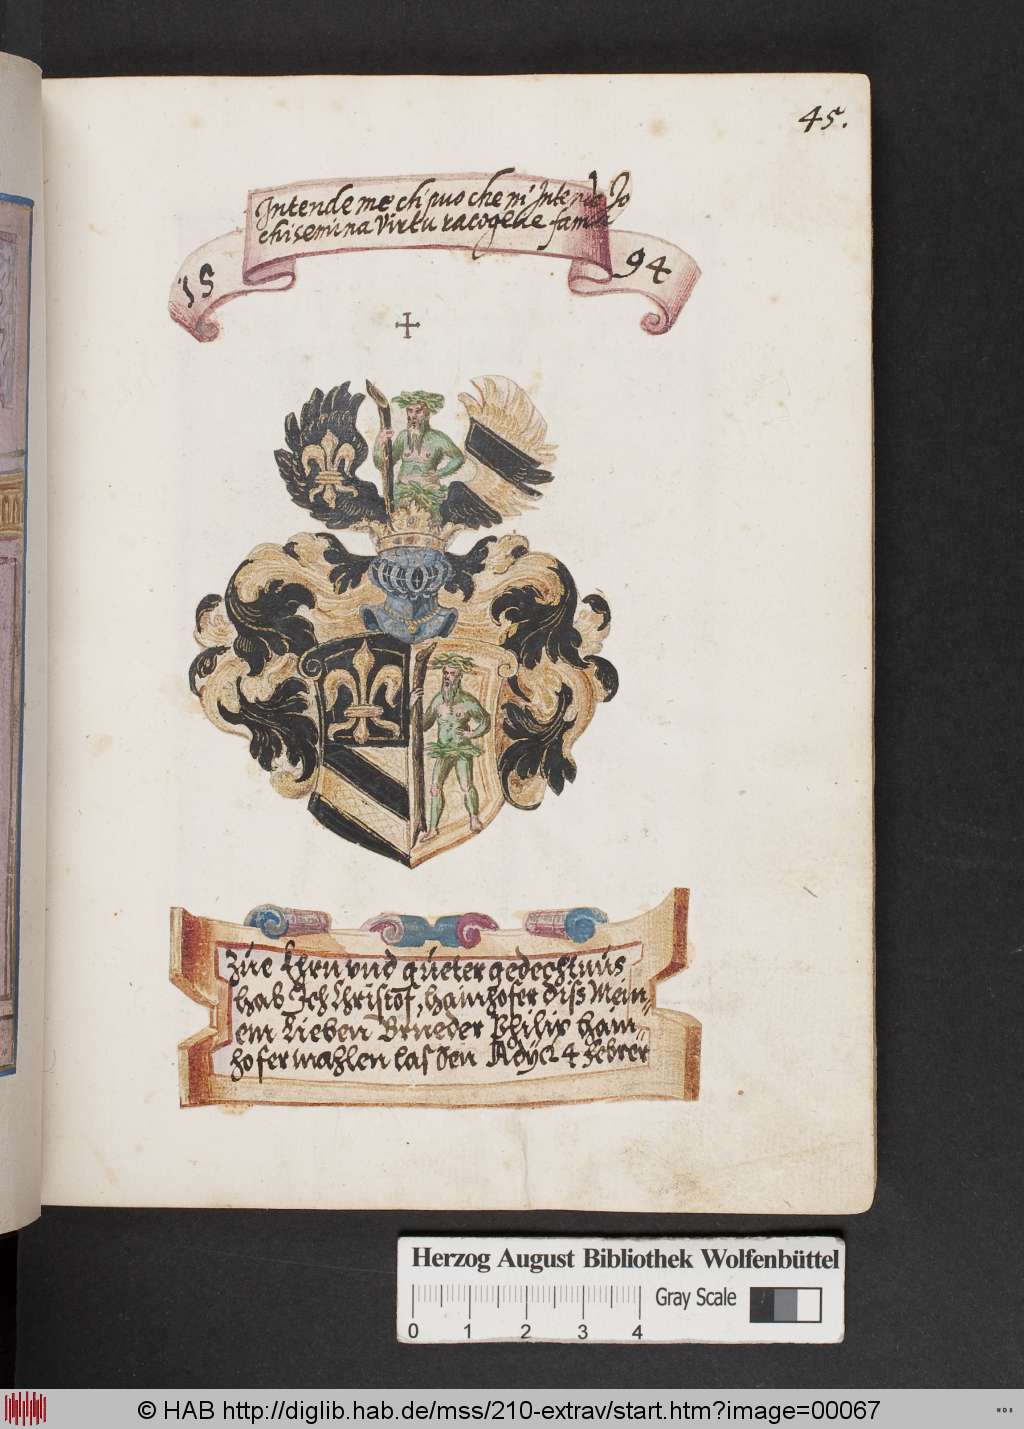 45.
Intende me chi puo che m' Intende Io
chi semina virtu racoglie fama
15 94
Zue Ehrn vnd gueter gedechtnüs
hab Ich Christof, hainhofer diss Mein„
em Lieben Brueder Philip hain„
hofer mahlen lassen Adÿ 4 Febrer
Herzog August Bibliothek Wolfenbüttel
Gray Scale
0 1 2 3 4
© HAB http://diglib.hab.de/mss/210-extrav/start.htm?image=00067